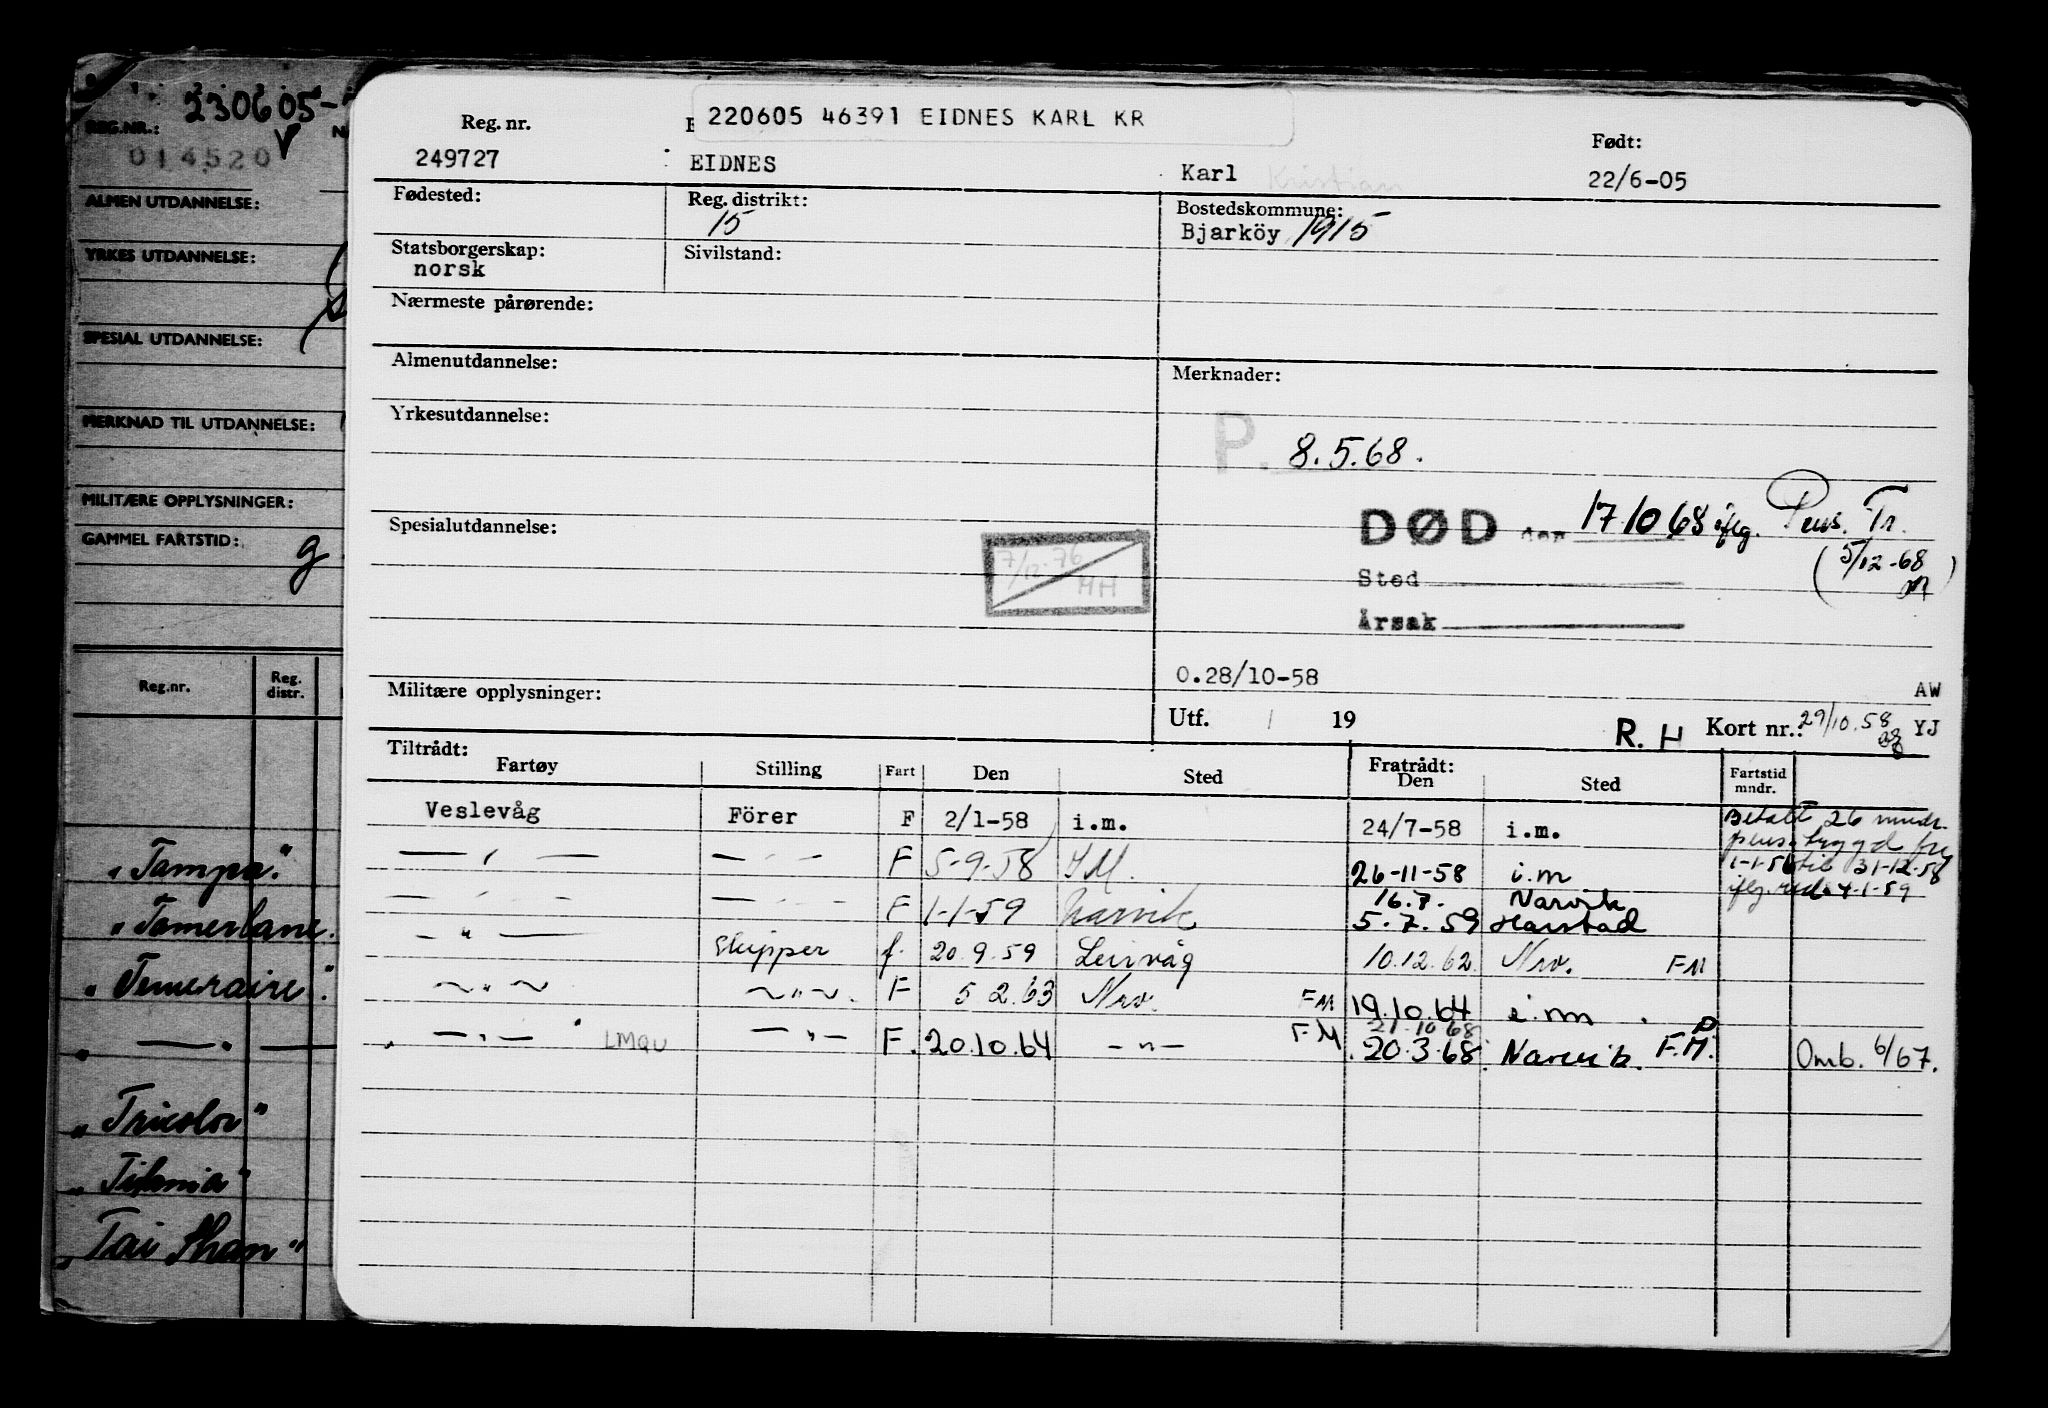 230605-
REG.NR.:
014520
ALMEN UTDANNELSE:
YRKES UTDANNELSE:
SPESIAL UTDANNELSE:
MERKNAD TIL UTDANNELSE:
MILITÆRE OPPLYSNINGER:
GAMMEL FARTSTID: g
Reg.nr. Reg. distr.
"Tampa."
"Tamerlane.
"Temeraire".
" — " —
"Tricolor"
"Titania"
"Tai Shan"
220605 46391 EIDNES KARL KR
Reg. nr. Født:
249727 EIDNES Karl Kristian 22/6-05
Fødested: Reg. distrikt: Bostedskommune:
15 Bjarköy 1915
Statsborgerskap: Sivilstand:
norsk
Nærmeste pårørende:
Almenutdannelse: Merknader:
Yrkesutdannelse:
P. 8.5.68.
Spesialutdannelse: DØD den 17 10 68 iflg. Pens. Tr.
7/12-76 HH (5/12-68
Sted
Årsak
0.28/10-58
Militære opplysninger: AW
Utf. / 19 R. H Kort nr.: 29/10.58 YJ
Tiltrådt: Fratrådt:
Fartøy Stilling Fart Den Sted Den Sted Fartstid mndr.
Veslevåg Förer F 2/1-58 i.m. 24/7-58 i.m. Betalt 26 mndr.
— " — — " — F 5-9-58 I.M. 26-11-58 i.m 1-1-56 til 31-12-58
16.7. Narvik
— " — — " — F 1-1-59 Narvik 5.7.59 Harstad
— " — Skipper f. 20.9.59 Leirvåg 10.12.62 Nrv. FM
~ " ~ ~ " ~. F 5 2.63 Nrv. FM 19.10.64 i.m.
21.10 68 P
" — " — " LMQU — " — F. 20.10.64 — " — FM 20.3.68. Narvik. F.M. Omb. 6/67.